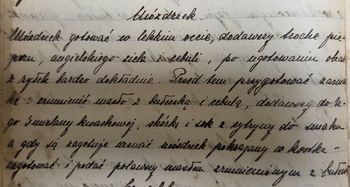 Móżdżek
Móżdżek gotować w lekkim occie, dodawszy trochę pie-
przu, angielskiego ziela i cebuli, po ugotowaniu obrać
z żyłek bardzo dokładnie. Przed tem przygotować zasma-
żkę: zrumienić masło z bułeczką i cebulą, dodawszy do te-
go śmietany kwaskowej, skórki i sok z cytryny do smaku
a gdy się zagotuje wrzucić móżdżek pokrajany w kostkę
zagotować i podać polawszy masłem zrumienionem z bułecz